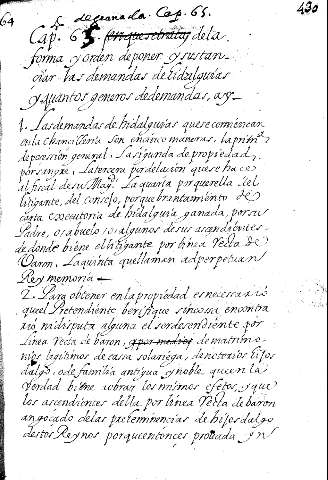 64
de granada. Cap. 65.
430
Cap. 65. de la
forma y orden de poner y sustan
ciar las demandas de hidalguias
y quantos generos de demandas, ay
1. Las demandas de hidalguias que se comiençan
en la Chancilleria son en cinco maneras. la prim.ª
de posesión general. La segunda de propiedad,
por sempre. La tercera por relación que se hace
al fiscal de su Mag.d La quarta por querella del
litigante, del consejo, por quebrantamiento de
carta executoria de hidalguia, ganada, por su
Padre, o abuelo, o algunos de sus ascendientes,
de donde biene el litigante por linea recta de
varon. La quinta que llaman ad perpetuan
Rey memoria
2. Para obtener en la propiedad es necesario
que el Pretendiente berifique sin cosa en contra
rio, ni disputa alguna el ser descendiente por
linea recta de baron, de matrimo
nios legitimos de casa solariega, de notorios hijos
dalgo, o de familia antigua y noble que en la
verdad biene a obrar los mismos efetos, y que
los ascendientes della por linea recta de baron
an gozado de las preheminencias de hijosdalgo
destos Reynos porque entonces probada